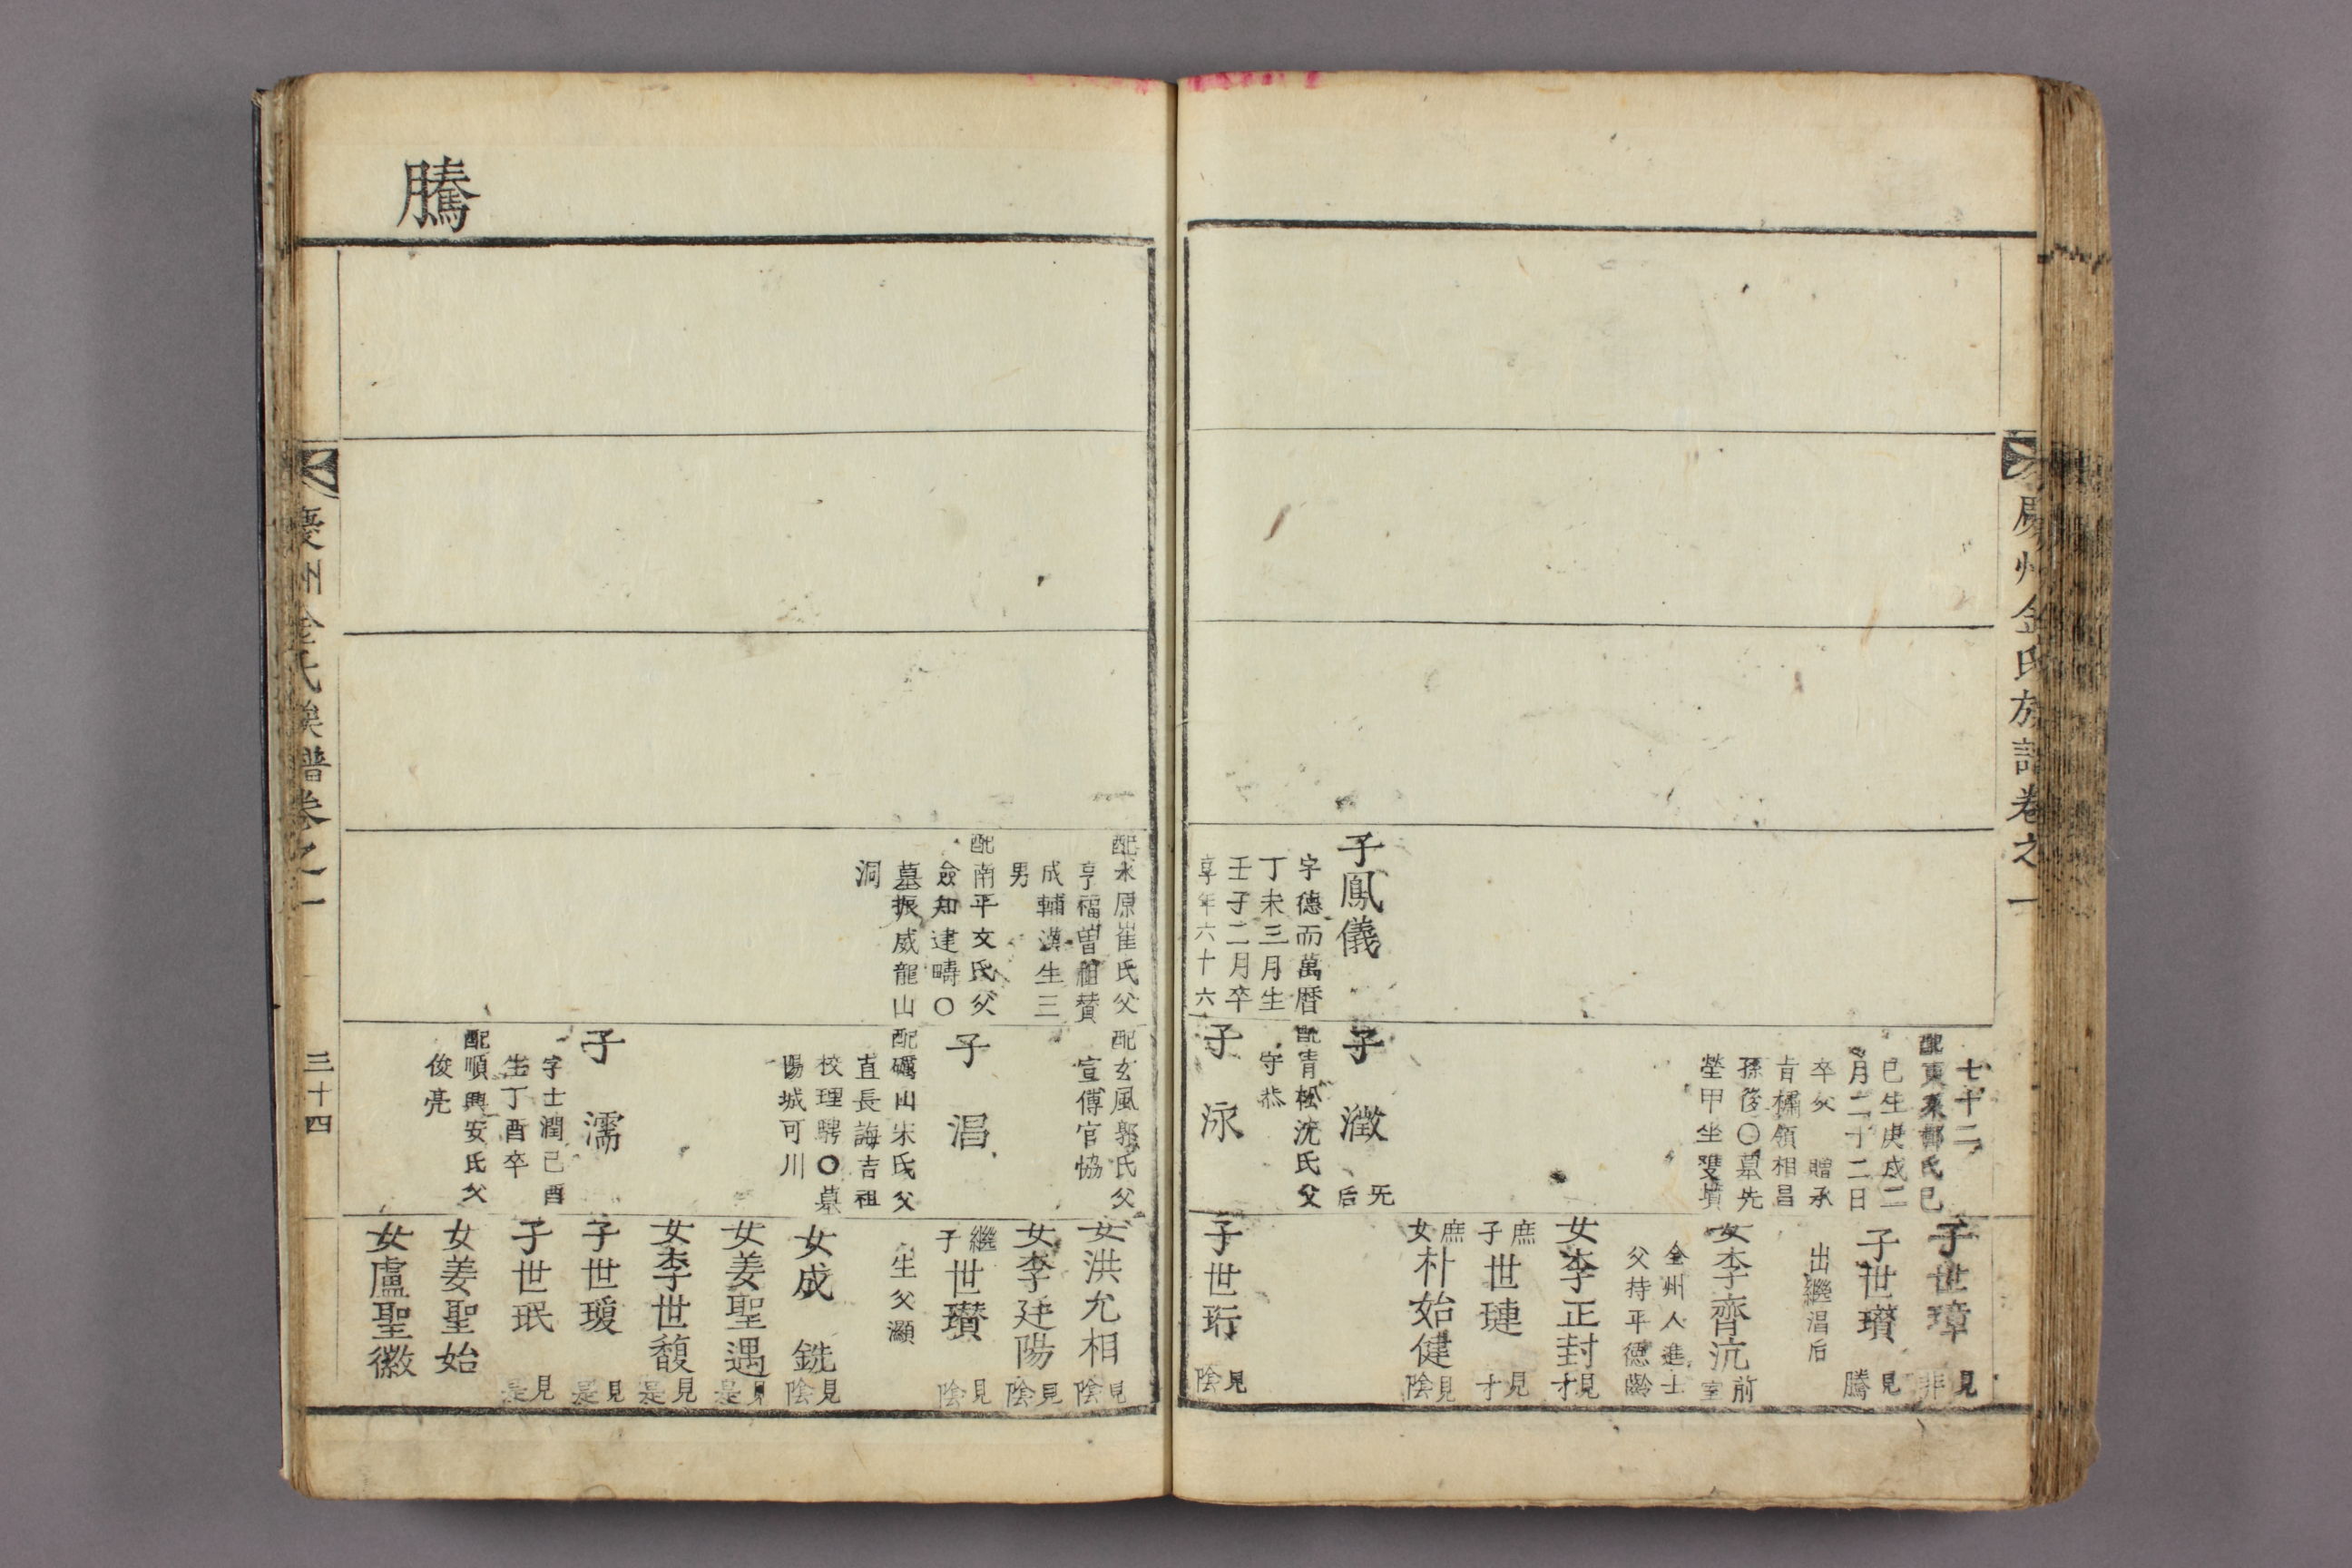 慶州金氏族譜卷之一
子鳳儀
字德而萬曆
丁未三月生
壬子二月卒
享年六十六
七十二
配東萊鄭氏己
巳生庚戌二
月二十二日
卒父 贈承
旨橚領相昌
孫後〇墓先
塋甲坐雙墳
子 瀓 无后
配靑松沈氏父
守恭
子 泳
子世璋 見非
子世瓚 見騰
出繼淐后
女李齊沆 前室
全州人進士
父持平德齡
女李正封 見才
庶子世璉 見才
庶女朴始健 見陰
子世珩 見陰
騰
配永原崔氏父
亨福曾祖賛
成輔漢生三
男
配南平文氏父
僉知建疇〇
墓振威龍山
洞
配玄風郭氏父
宣傳官恊
子 淐
配礪山宋氏父
直長誨吉祖
校理騁〇墓
陽城可川
子 濡
字士潤己酉
生丁酉卒
配順興安氏父
俊亮
女洪允相 見陰
女李廷陽 見陰
繼子世瓚 見陰
生父灝
女成 銑 見陰
女姜聖遇 見是
女李世馥 見是
子世瑗 見是
子世珉 見是
女姜聖始
女盧聖徽
慶州金氏族譜卷之一
三十四